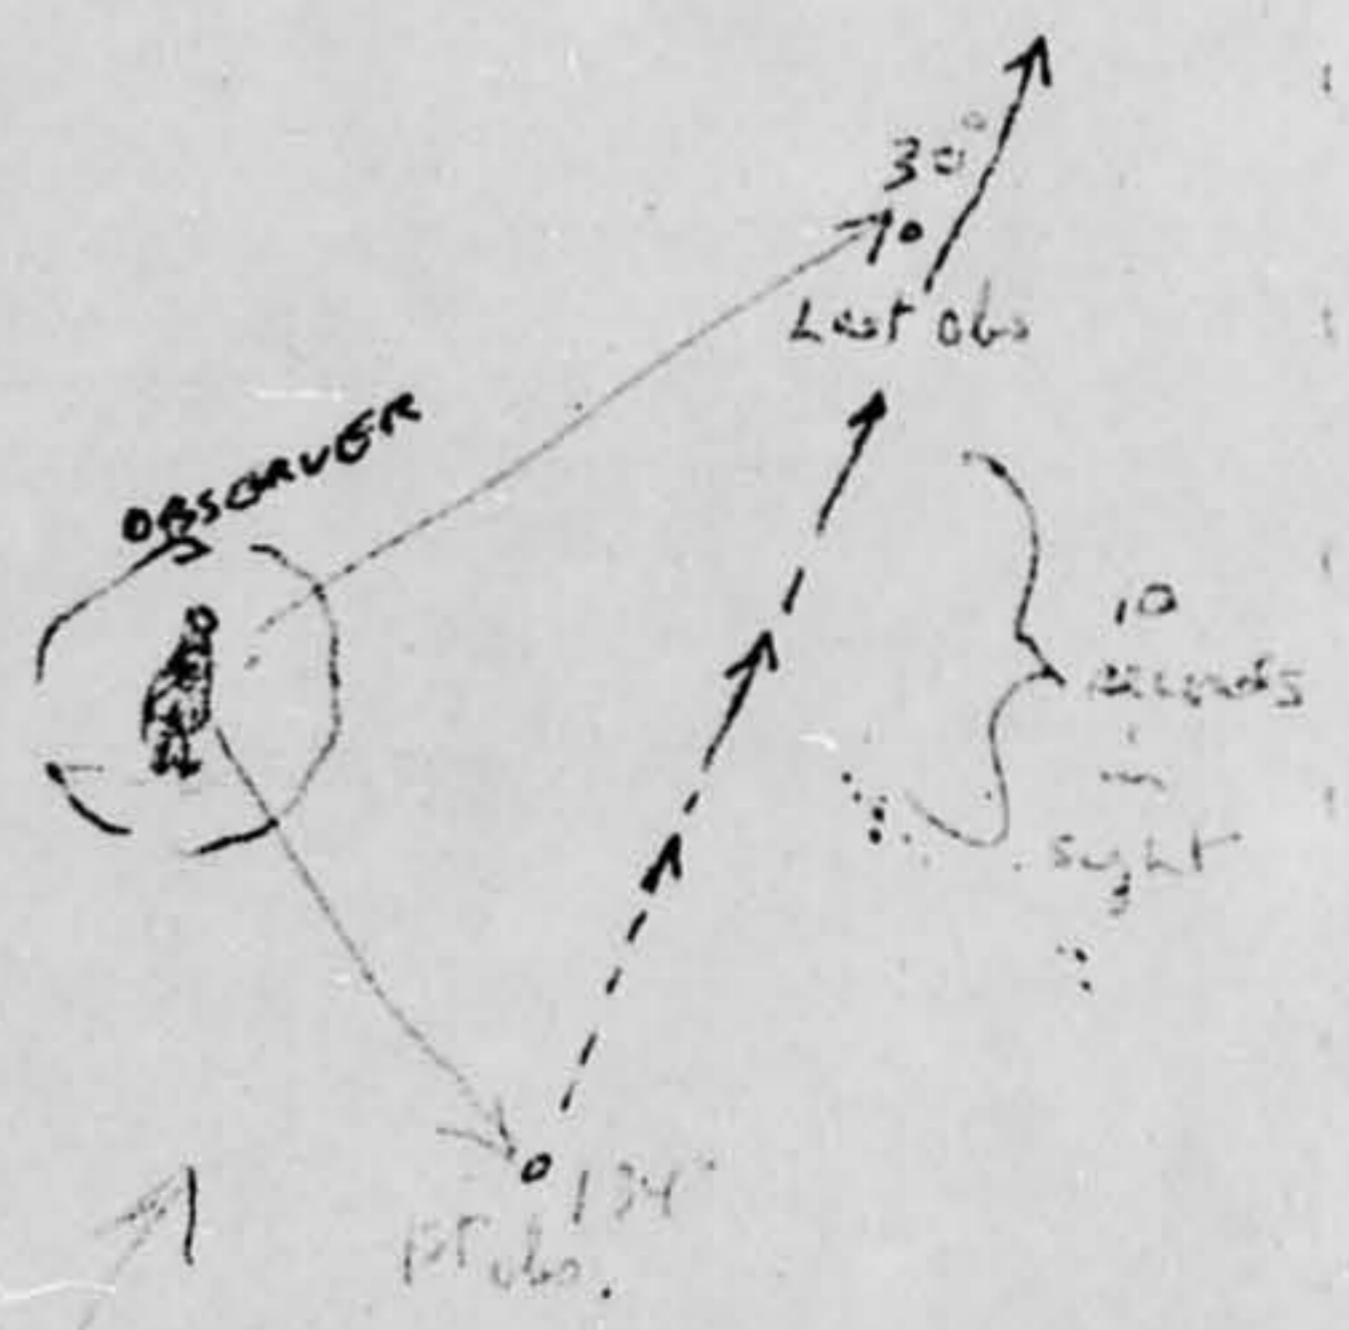 30°
Last obs
OBSERVER
10
seconds
in
sight
134°
1st obs.